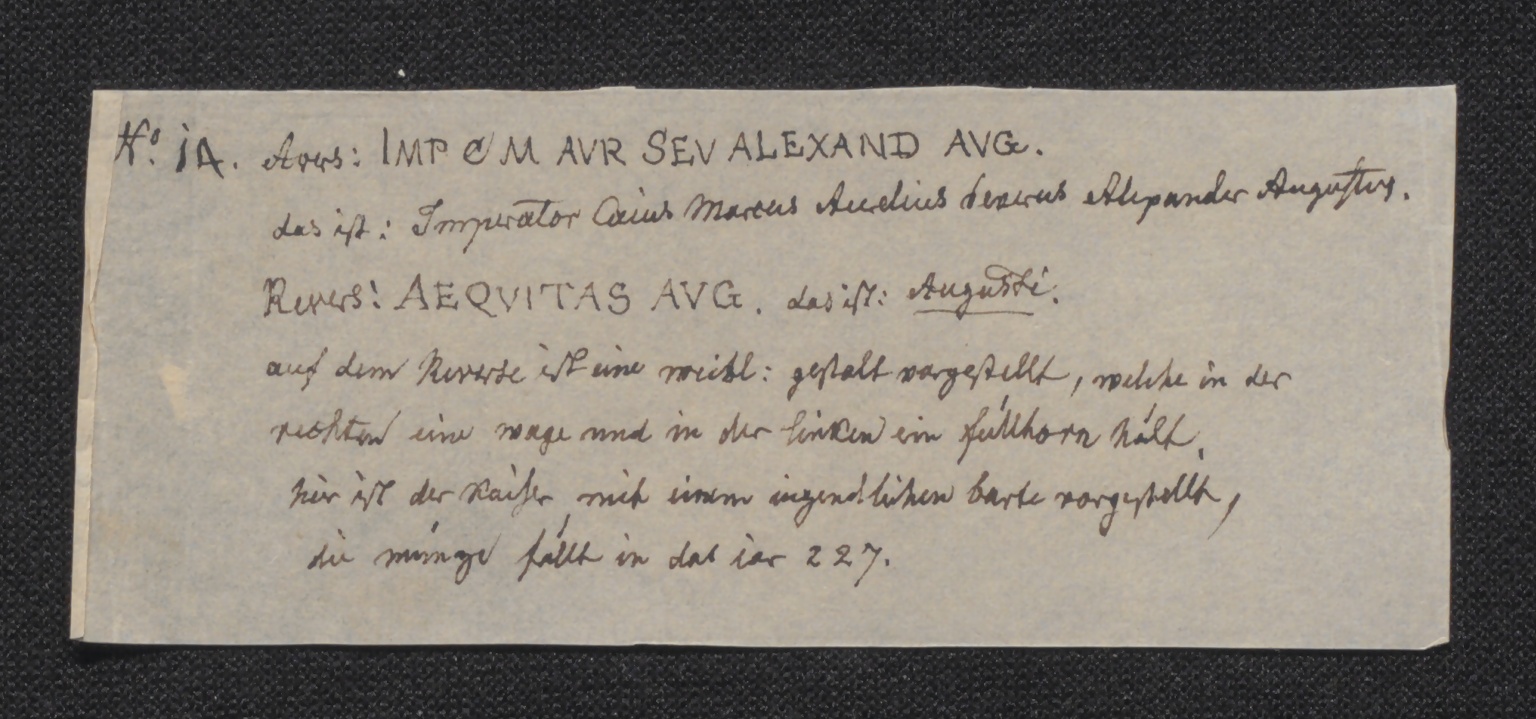 No. 14. Avers: IMP C M AVR SEV ALEXAND AVG.
das ist: Imperator Caius Marcus Aurelius Severus Alexander Augustus.
Revers: AEQVITAS AVG. das ist: Augusti.
auf dem Reverse ist eine weibl: gestalt vorgestellt, welche in der
rechten eine wage und in der linken ein füllhorn hält.
hier ist der kaiser mit einem iugendlichen barte vorgestellt,
die münze fällt in das iar 227.